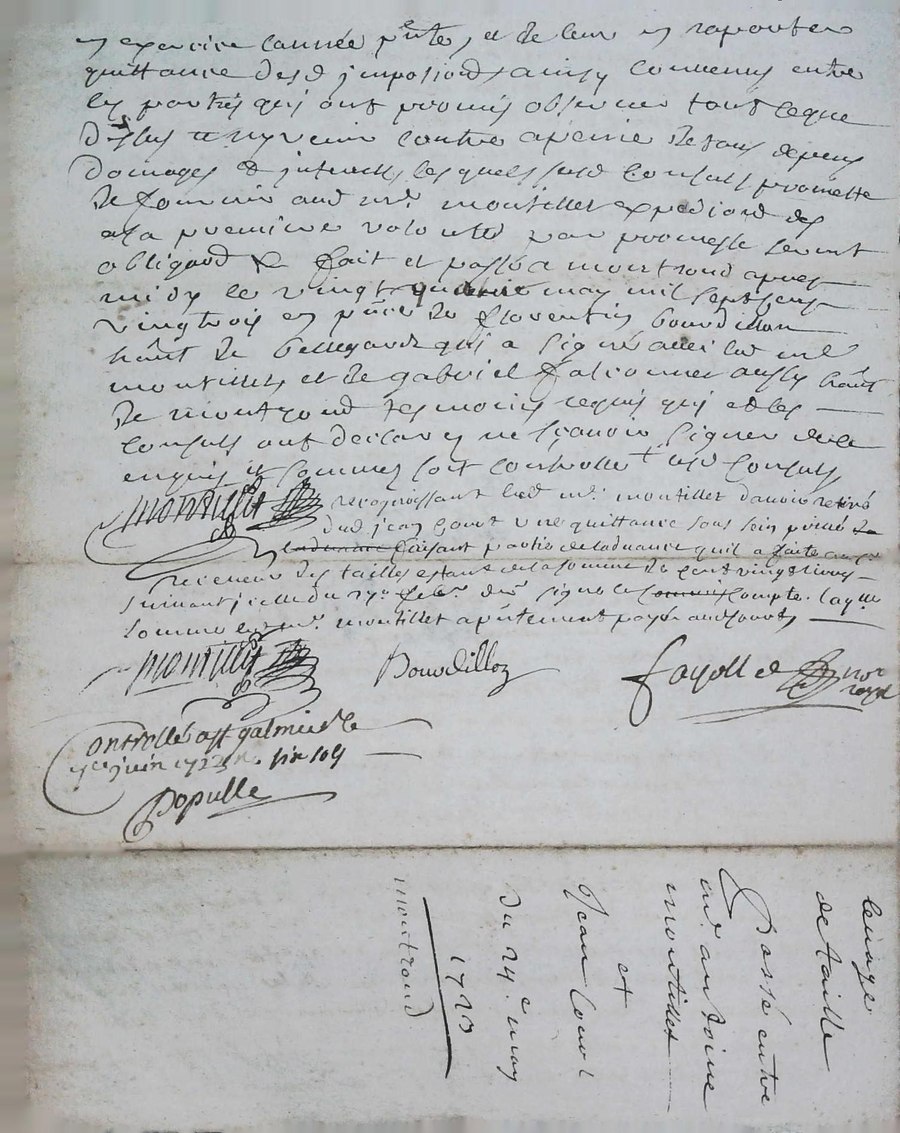 en exercice l'année pnte, et de leur en raporter
quittance desd imposiond, ainsy convenus entre
les parties qui ont promis observer tout ceque
dessus et ny venir contre apeine de tous depens
domages & interests, lesquels susd consuls promette
de fournir aud mr montillet expediond des
ala premiere volonté par promesse serment
obligaod & fait et passé a montrond apres
midy le vingt quatre may mil sept cens
vingtrois en pnce de florentin bourdillon
hant de bellegarde qui a signé avec led mr
montillet, et de gabriel falconnet aussy hant
de montrond tesmoins requis qui et les
consuls ont declaré ne sçavoir signer de ce
enquis et sommes soit controllé + lesd consuls
montillet recognoissant led mr montillet d'avoir retiré
dud jean une quittance sous sein privé
faisant partie de ladvance quil a faite
receveur des tailles estant de la somme de cent vingt livres
suivant icelle du signé compte. laqlle
somme led mr montillet a pntement payée aud
montillet Bourdillon fayolle nore royal
Controllé a st galmier le
juin 1723 six sols
Populle
levage
de taille
Passé entre
mr. antoine
montillet
et
Jean
du 24.e may
1723
montrond